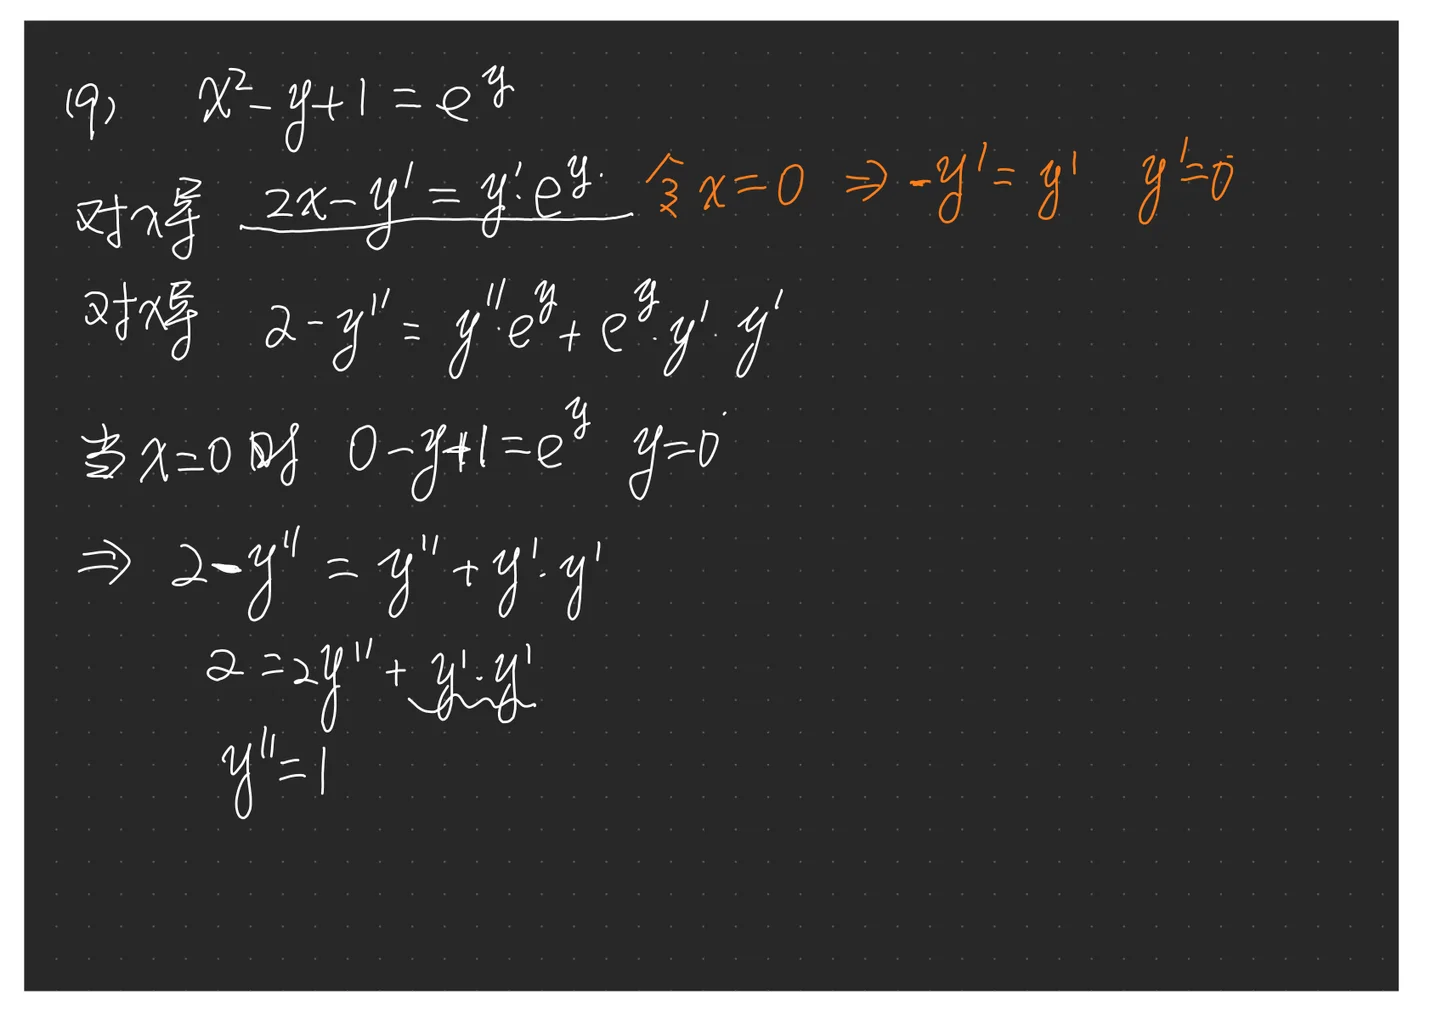 (9) x²-y+1=e^y
对x导 2x-y'=y'·e^y. 令x=0 ⇒ -y'=y' y'=0
对x导 2-y''=y''·e^y+e^y·y'·y'
当x=0时 0-y+1=e^y y=0
⇒ 2-y''=y''+y'·y'
2=2y''+y'·y'
y''=1